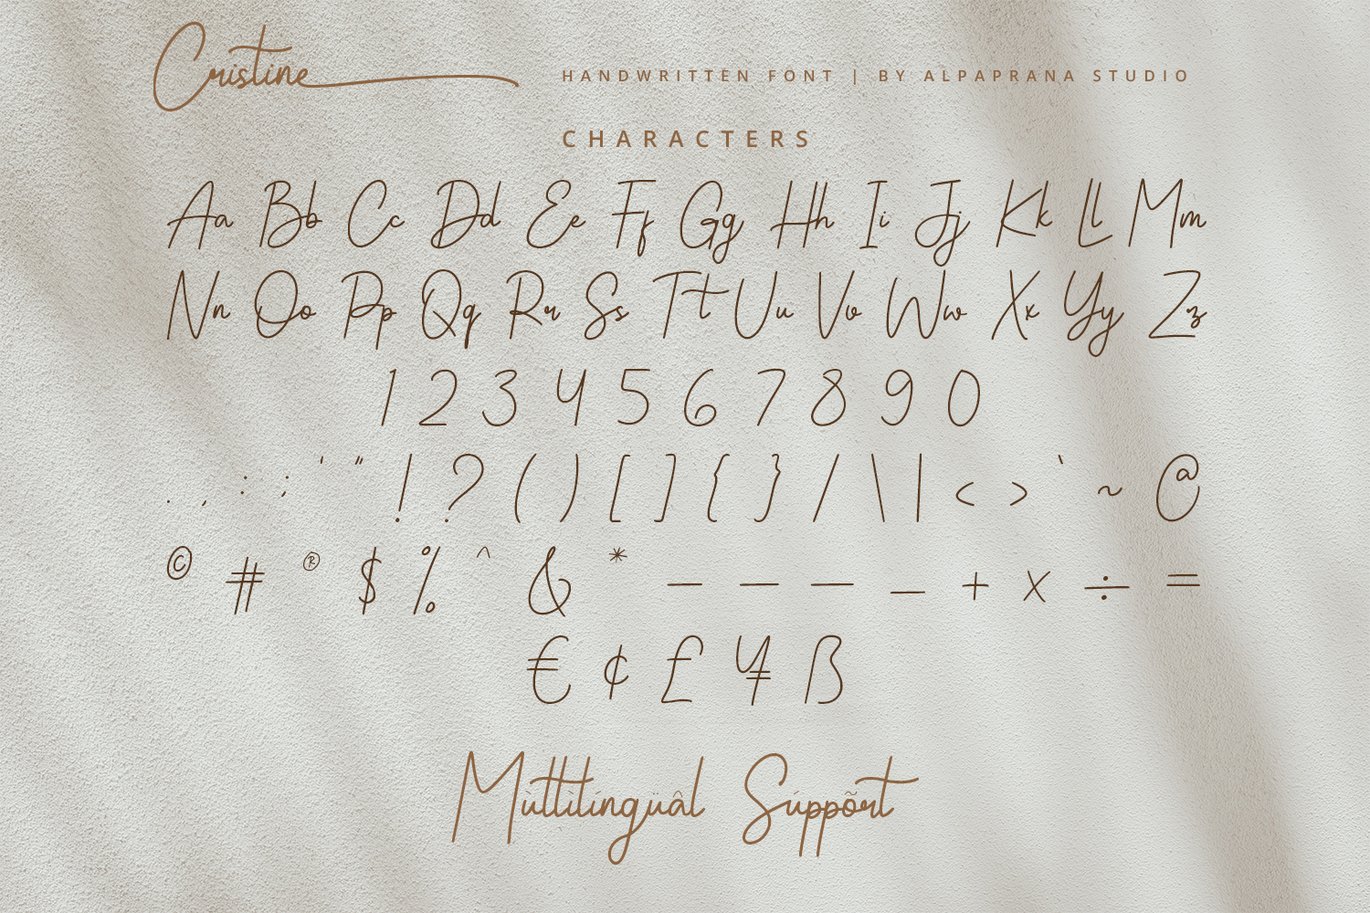 Cristine
HANDWRITTEN FONT | BY ALPAPRANA STUDIO
CHARACTERS
Aa Bb Cc Dd Ee Ff Gg Hh Ii Jj Kk Ll Mm
Nn Oo Pp Qq Rr Ss Tt Uu Vv Ww Xx Yy Zz
1 2 3 4 5 6 7 8 9 0
. , : ; ' " ! ? ( ) [ ] { } / \ | < > ` ~ @
© # ® $ % ^ & * – — — _ + × ÷ =
€ ¢ £ ¥ ß
Mùltìlíngüâl Súppõrt